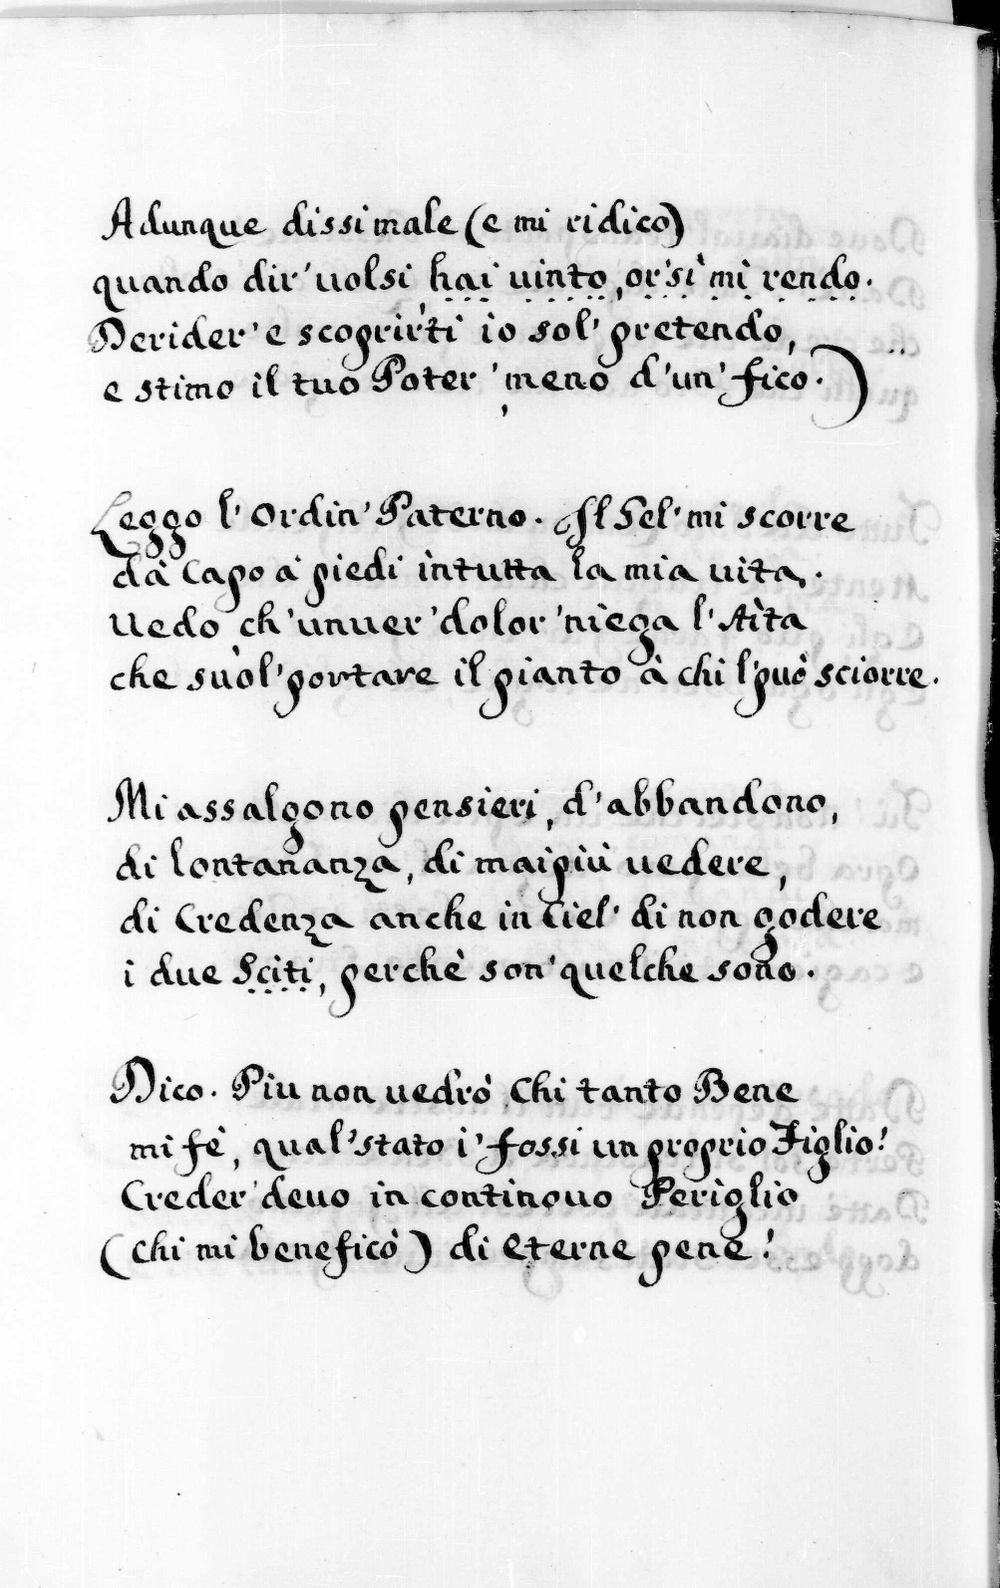 Adunque dissi male (e mi ridico)
quando dir' uolsi hai uinto, or' sì mi rendo.
Derider' e scoprir'ti io sol' pretendo,
e stimo il tuo Poter' meno d'un' fico.)
Leggo l'Ordin' Paterno. Il Gel' mi scorre
dà Capo à piedi in tutta la mia uita.
Uedo ch'un uer' dolor' niega l'Aita
che suol' portare il pianto à chi l'può sciorre.
Mi assalgono pensieri, d'abbandono,
di lontananza, di mai più uedere,
di Credenza anche in Ciel' di non godere
i due Sciti, perchè son' quelche sono.
Dico. Piu non uedrò Chi tanto Bene
mi fè, qual' stato i' fossi un proprio Figlio!
Creder' deuo in continouo Periglio
(Chi mi beneficò) di eterne pene!